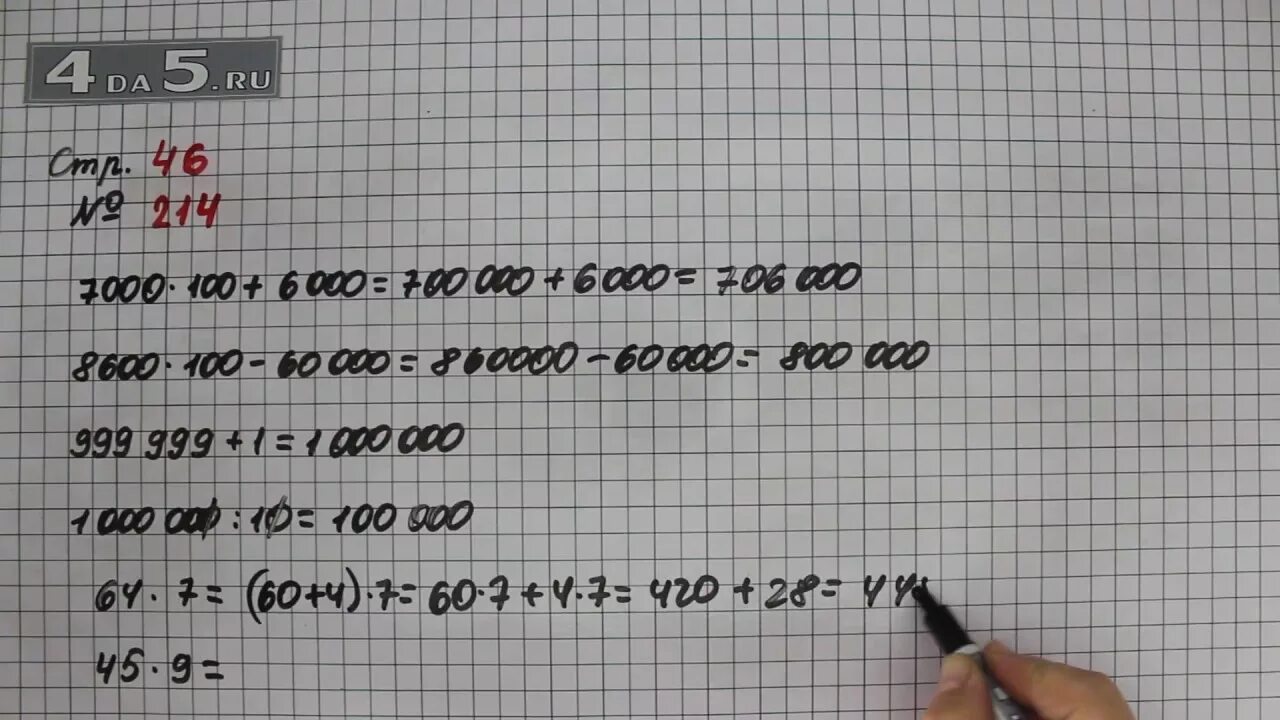 4DA5.RU
Стр. 46
№ 214
7000·100+6000=700 000+6000=706 000
8600·100-60 000=860000-60 000=800 000
999 999+1=1 000 000
1 000 000:10=100 000
64·7=(60+4)·7=60·7+4·7=420+28=44
45·9=